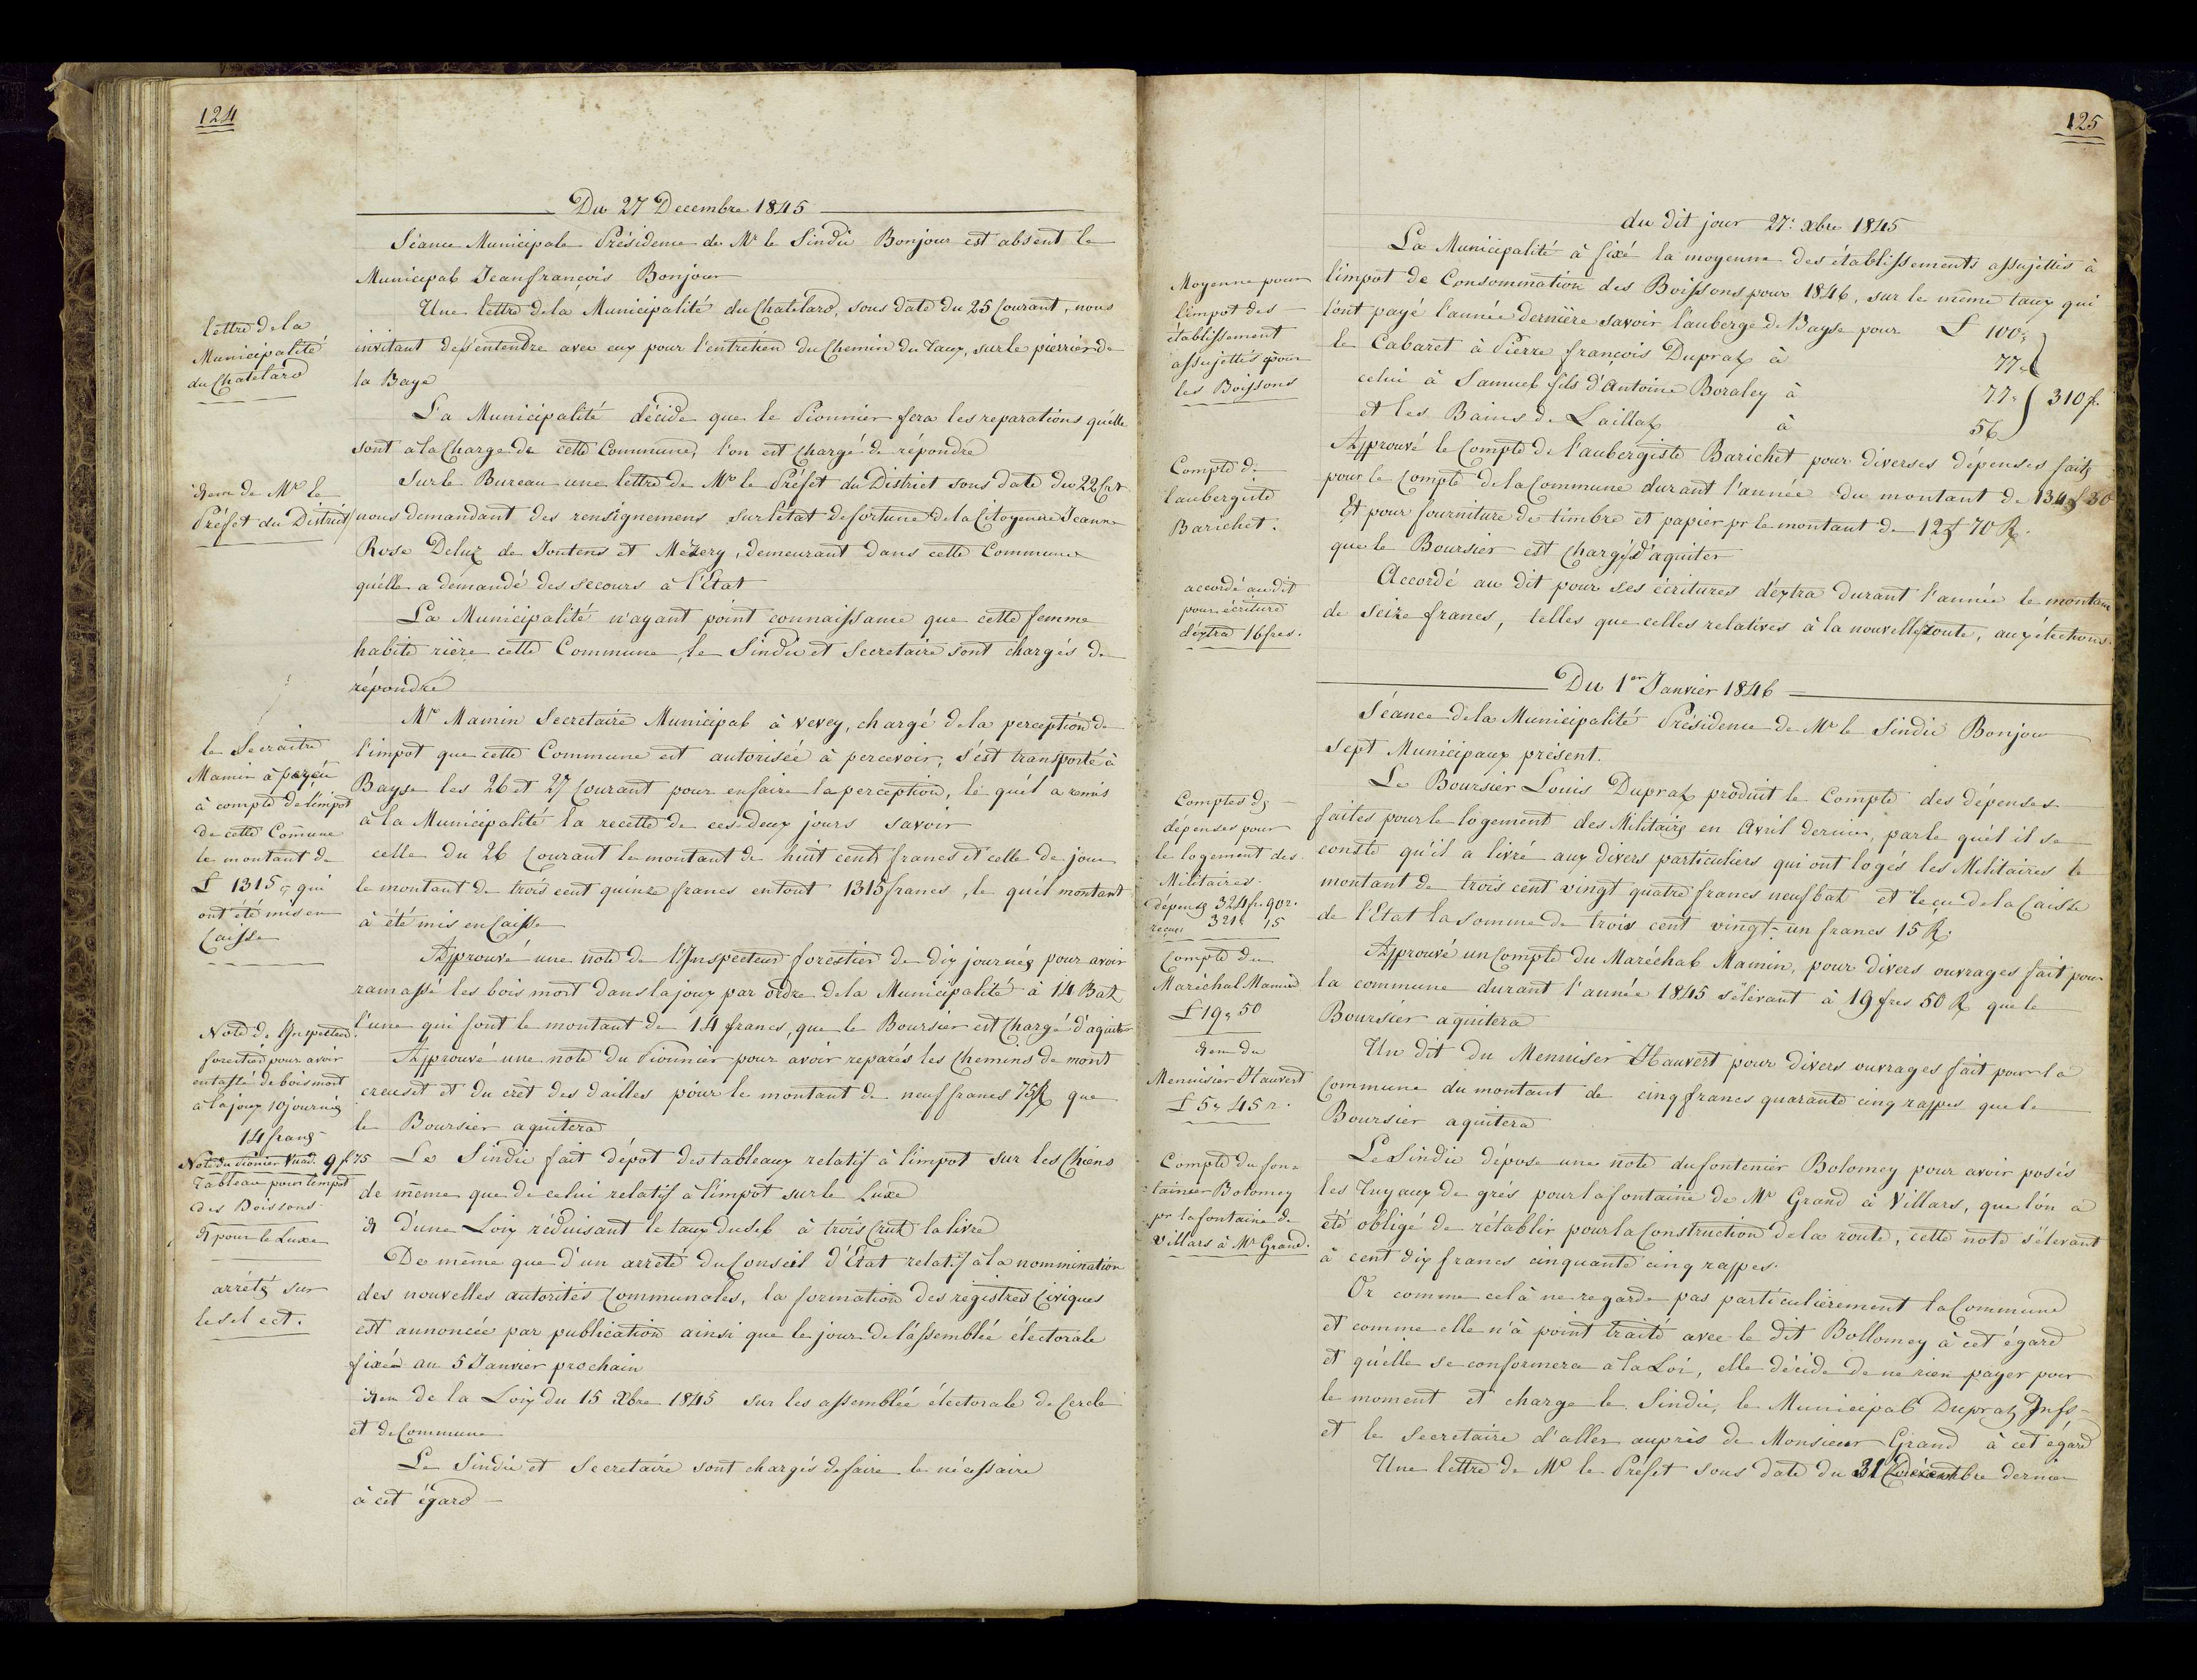 124
Du 27 Decembre 1845
Séance Municipale Présidence de Mr le Sindic Bonjour est absent le
Municipal Jeanfrançois Bonjour
lettre de la
Municipalité
du Chatelard
Une lettre de la Municipalité du Chatelard, sous date du 25 Courant, nous
invitant de s'entendre avec eux pour l'entretien du Chemin du Taux, sur le pierrier de
la Baye
La Municipalité décide que le Pionnier fera les reparations qu'elle
sont à la Charge de cette Commune, l'on est Chargé de répondre
idem de Mr le
Préfet du District
Sur le Bureau une lettre de Mr le Préfet du District sous date du 22 Crt
nous demandant des rensignemens sur l'état de fortune de la Citoyenne Jeanne
Rose Deluz de Joutens et Mézery, demeurant dans cette Commune
qu'elle a démandé des secours à l'État
La Municipalité n'ayant point connaissance que cette femme
habite rière cette Commune, le Sindic et Secretaire sont chargés de
répondre
le Secraitre
Mamin à payéu
à compte de l'impot
de cette Comune
le montant de
£ 1315 „ qui
ont été mis en
Caisse
Mr Mamin Secretaire Municipal à Vevey, chargé de la perception de
l'impot que cette Commune est autorisée à percevoir, s'est transporté à
Bayse les 26 et 27 Courant pour en faire la perception, le quél a remis
à la Municipalité la recette de ces deux jours savoir
celle du 26 Courant le montant de huit cents francs et celle de jour
le montant de trois cent quinze francs en tout 1315 francs, le quél montant
à été mis en Caisse
Note de Inspecteur
forestier pour avoir
entassé de bois mort
à la joux 10 journés
14 francs
Approuvé une note de l'Inspecteur forestier de dix journés pour avoir
ramassé les bois mort dans la joux par ordre de la Municipalité à 14 Batz
l'une qui font le montant de 14 francs, que le Boursier est Chargé d'aquiter
Note du Pionier 9 f 75
Approuvé une note du Pionnier pour avoir reparés les Chemins de mont
creuset et du crêt des dailles pour le montant de neuf francs 75 R que
le Boursier aquitera
Tableau pour l'empot
des Boissons
Id pour le Luxe
Le Sindic fait dépot des tableaux relatif à l'impot sur les Chiens
de même que de celui relatif à l'impôt sur le Luxe
Id d'une Loix réduisant le taux du sel à trois Crutz la livre
arrétés sur
le sel ect.
De même que d'un arrêté du Conseil d'État relatif à la nommination
des nouvelles autorités Communales, la formation des régistres Civiques
est annoncée par publication ainsi que le jour de l'assemblée électorale
fixée au 5 Janvier prochain
idem de la Loix du 15 Xbre 1845 sur les assemblée électorale de Cercle
et de Commune
Le Sindic et Secretaire sont chargés de faire le nécessaire
à cet égard
125
du dit jour 27. xbre 1845
Moyenne pour
l'impot des
établissement
assujettis pour
les Boissons
La Municipalité à fixé la moyenne des établissements assujettis à
l'impot de Consommation des Boissons pour 1846, sur le même taux qui
l'ont payé l'année dernière savoir l'auberge de Bayse pour £ 100 „
le Cabaret à Pierre françois Dupraz à 77 „
celui à Samuel fils d'Antoine Boraley à 77 „ 310 f.
et les Bains de Laillaz à 56
Compte de
l'aubergiste
Barichet.
Approuvé le Compte de l'aubergiste Barichet pour diverses dépenses faits
pour le Compte de la Commune durant l'année du montant de 134 f 30
Et pour fourniture de timbre et papier pr le montant de 12 f 70 R.
que le Boursier est Chargé d'aquiter
accordé au dit
pour écriture
d'éxtra 16 frcs.
Accordé au dit pour ses écritures d'éxtra durant l'année le montant
de seize francs, telles que celles relatives à la nouvelle route, aux élections.
Du 1er Janvier 1846
Séance de la Municipalité Présidence de Mr le Sindic Bonjour
sept Municipaux présent.
Comptes des
dépenses pour
le logement des
Militaires.
dépens 324 fr. 90 r.
reçus 321 „ 15
Le Boursier Louis Dupraz produit le Compte des dépenses
faites pour le logement des Militairs en Avril dernier, par le quél il se
conste qu'il a livré aux divers particuliers qui ont logés les Militaires le
montant de trois cent vingt quatre francs neuf batz et reçu de la Caisse
de l'Etat la somme de trois cent vingt-un francs 15 R.
Compte du
Maréchal Mamin
£ 19 „ 50
Approuvé un Compte du Maréchal Mamin, pour divers ouvrages fait pour
la commune durant l'année 1845 s'élévant à 19 frcs 50 R que le
Boursier aquitera
idem du
Menuisier Hauvert
£ 5 „ 45 r.
Un dit du Menuiser Hauvert pour divers ouvrages fait pour la
Commune du montant de cinq francs quarante cinq rappes que le
Boursier aquitera
Compte du fon=
tainier Bolomey
pr la fontaine de
Villars à Mr Grand.
Le Sindic dépose une note du fontenier Bolomey pour avoir posés
les Tuyaux de grés pour la fontaine de Mr Grand à Villars, que l'ón a
été obligé de rétablir pour la Construction de la route, cette note s'élevant
à cent dix francs cinquante cinq rappes.
Or comme celà ne regarde pas particulièrement la Commune
et comme elle n'à point traité avec le dit Bollomey à cet égard
et qu'elle se conformera à la Loi, elle décide de ne rien payer pour
le moment et charge le Sindic, le Municipal Dupraz
et le Secretaire d'aller auprès de Monsieur Grand à cet égard
Une lettre de Mr le Préfet sous date du 31 Décembre dernier